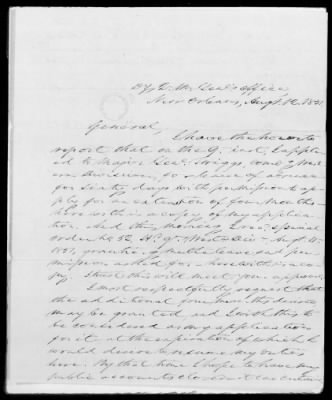 Office
New Orleans, Aug. 12. 1851
General,
I have the honor to
report that on the 9. inst. I appli-
ed to Major Genl. Twiggs, comg. Wes-
tern Division, for leave of absence
for sixty days with permission to ap-
ply for an extension of four months
here with is a copy of my applica-
tion. And this morning I rec. special
orders No. 52 Hd. Qr. West. Div. Aug. 11.
1851, granting the leave and per-
mission asked for, herewith is a co-
py. I trust this will meet your approval.
I most respectfully request that
the additional four mos. thus desired
may be granted, and I wish this to
be considered as my application
for it, at the expiration of which I
would desire to resume my duties
here. By that time I hope to have my
public accounts closed